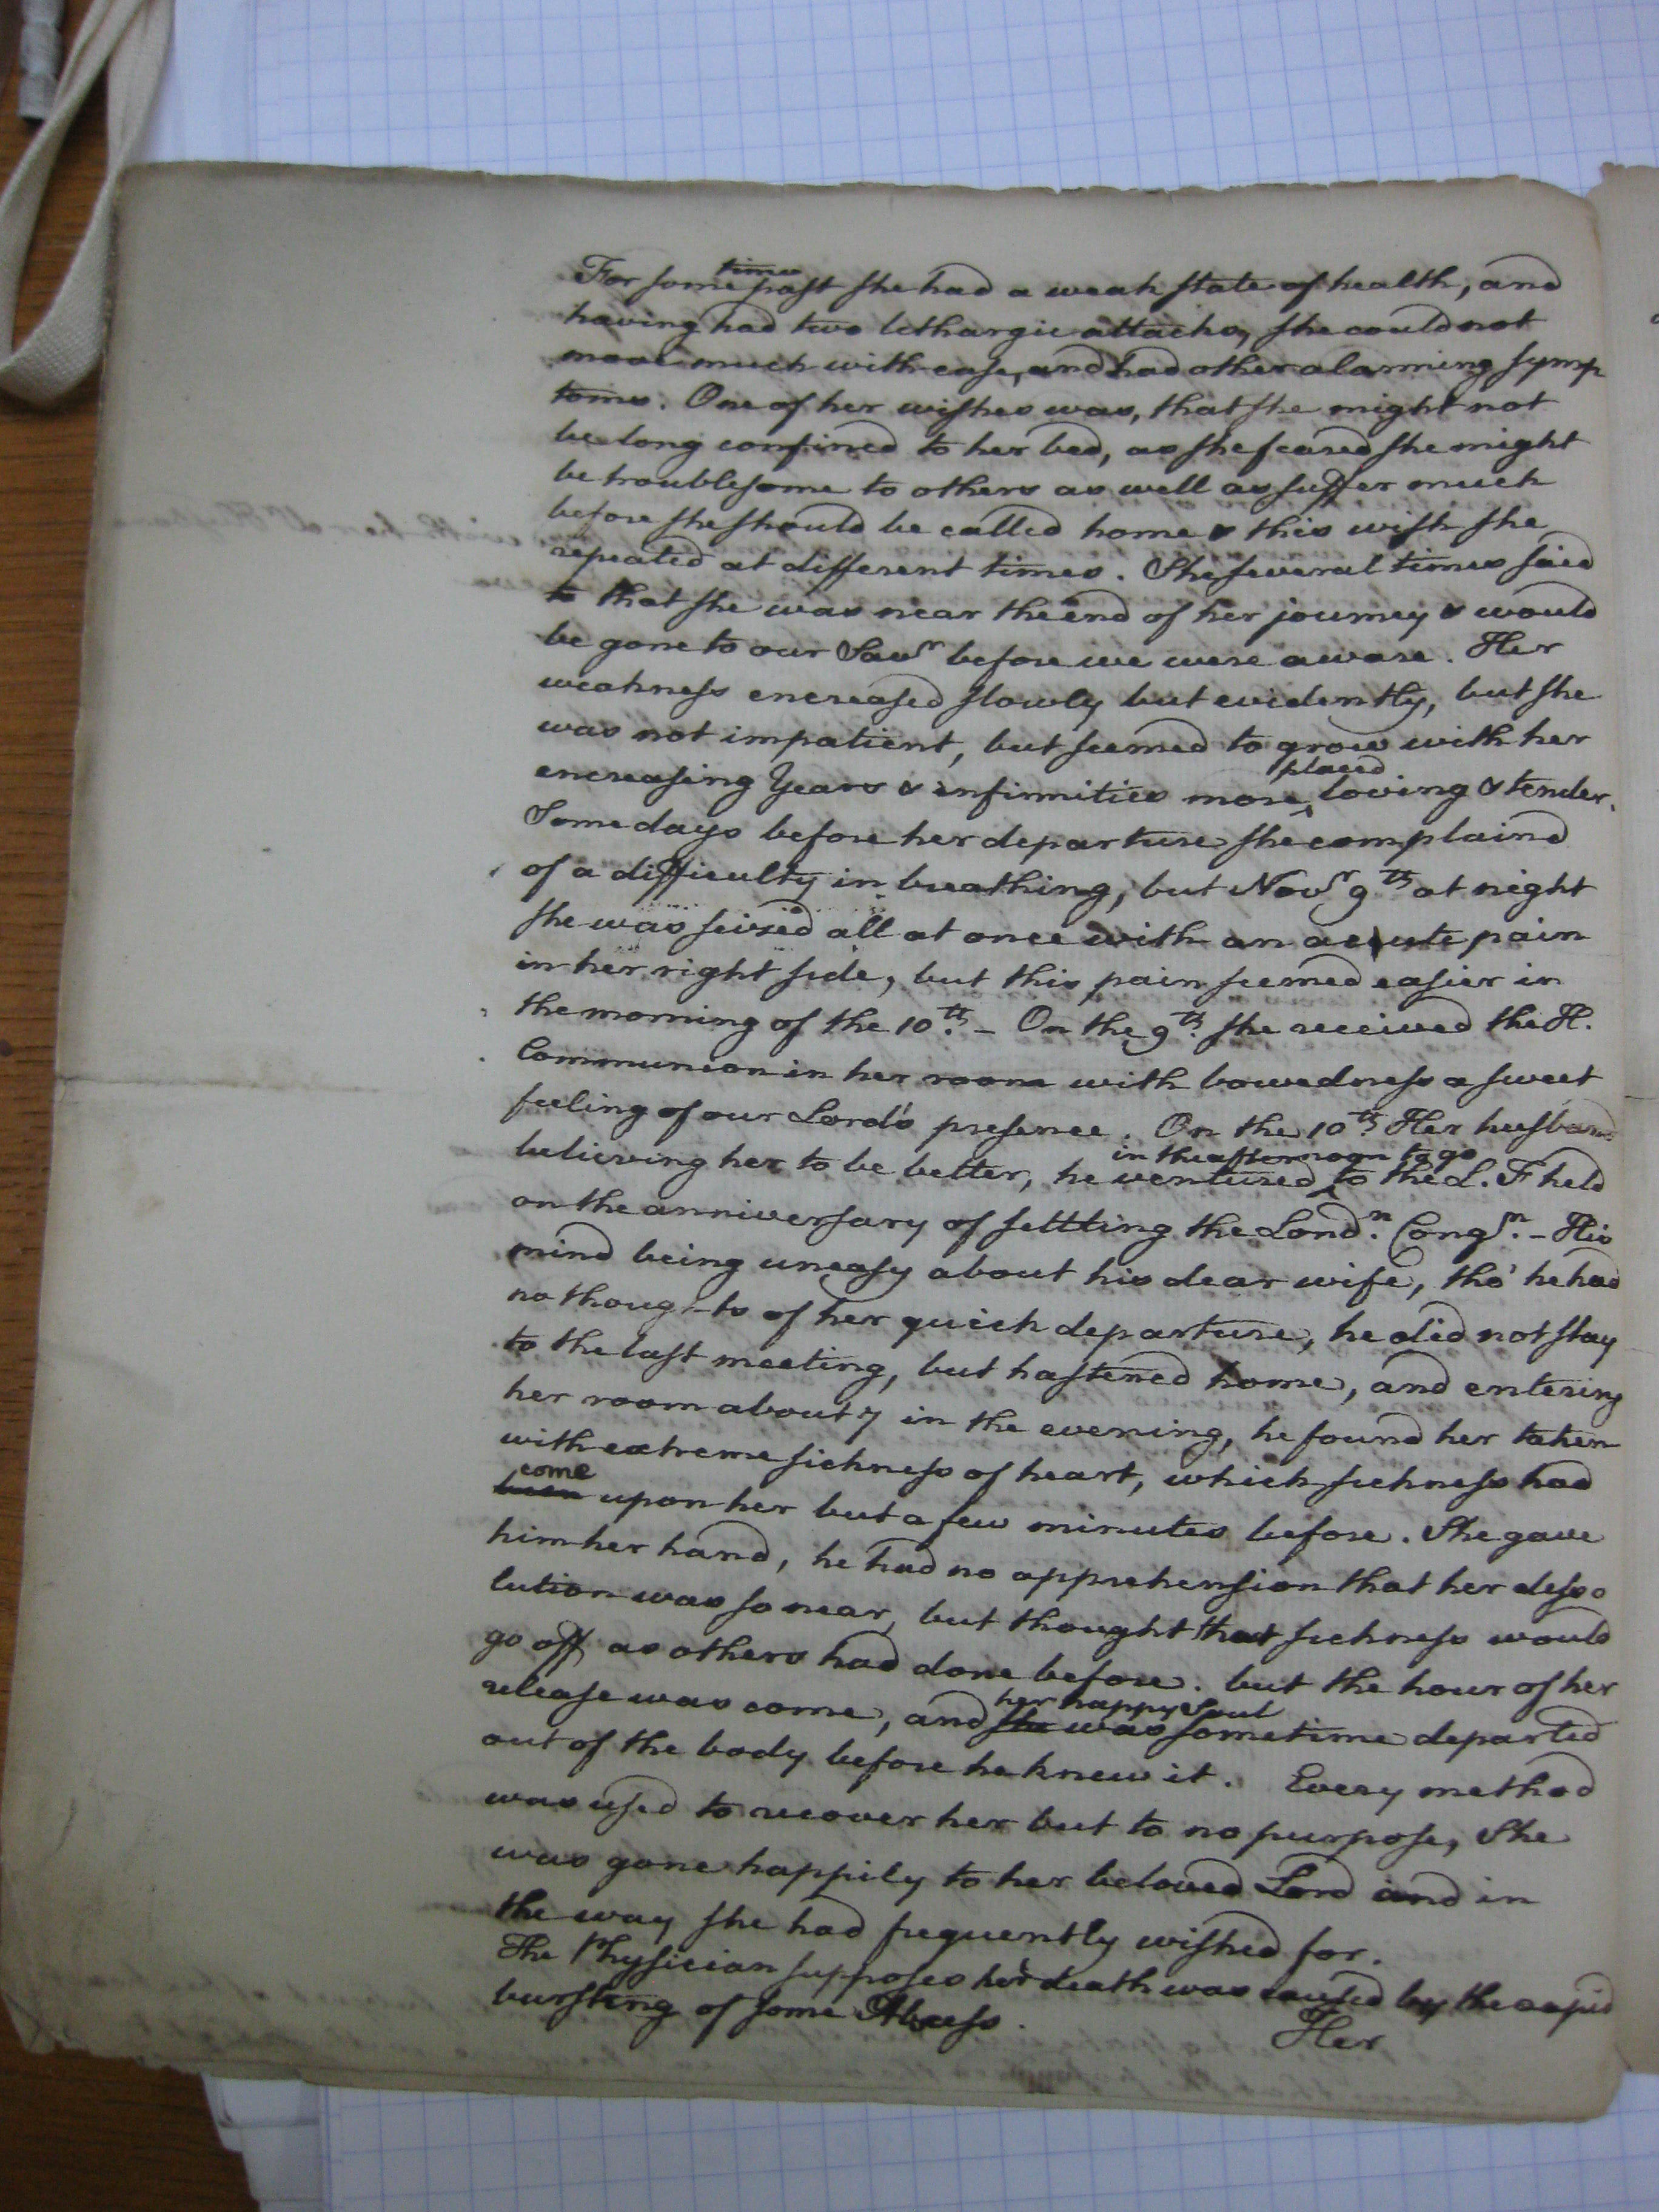 For some time past she had a weak state of health, and
having had two lethargic attacks, she could not
move much with ease, and had other alarming symp
toms. One of her wishes was, that she might not
be long confined to her bed, as she feared she might
be troublesome to others as well as suffer much
before she should be called home & this wish she
repeated at different times. She several times said
to that she was near the end of her journey & would
be gone to our Savr before we were aware. Her
weakness encreased slowly but evidently, but she
was not impatient, but seemed to grow with her
encreasing Years & infirmities more placed loving & tender.
Some days before her departure she complaind
of a difficulty in breathing, but Novr 9th at night
she was seized all at once with an acute pain
in her right side, but this pain seemed easier in
the morning of the 10th. - On the 9th. she received the H.
Communion in her room with bowedness a sweet
feeling of our Lord's presence. On the 10th. Her husband
believing her to be better, he ventured in the afternoon to go to the L. F held
on the anniversary of settling the Londn. Congn. - His
mind being uneasy about his dear wife, tho' he had
no thoughts of her quick departure, he did not stay
to the last meeting, but hastened home, and entering
her room about 7 in the evening, he found her taken
with extreme sickness of heart, which sickness had
been come upon her but a few minutes before. She gave
him her hand, he had no apprehension that her desso
lution was so near, but thought that sickness would
go off as others had done before. but the hour of her
release was come, and she her happy Soul was sometime departed
out of the body before he knew it. Every method
was used to recover her but to no purpose, She
was gone happily to her beloved Lord and in
the way she had frequently wished for.
The Physician supposes her death was caused by the rapid
bursting of some Abcess.
Her